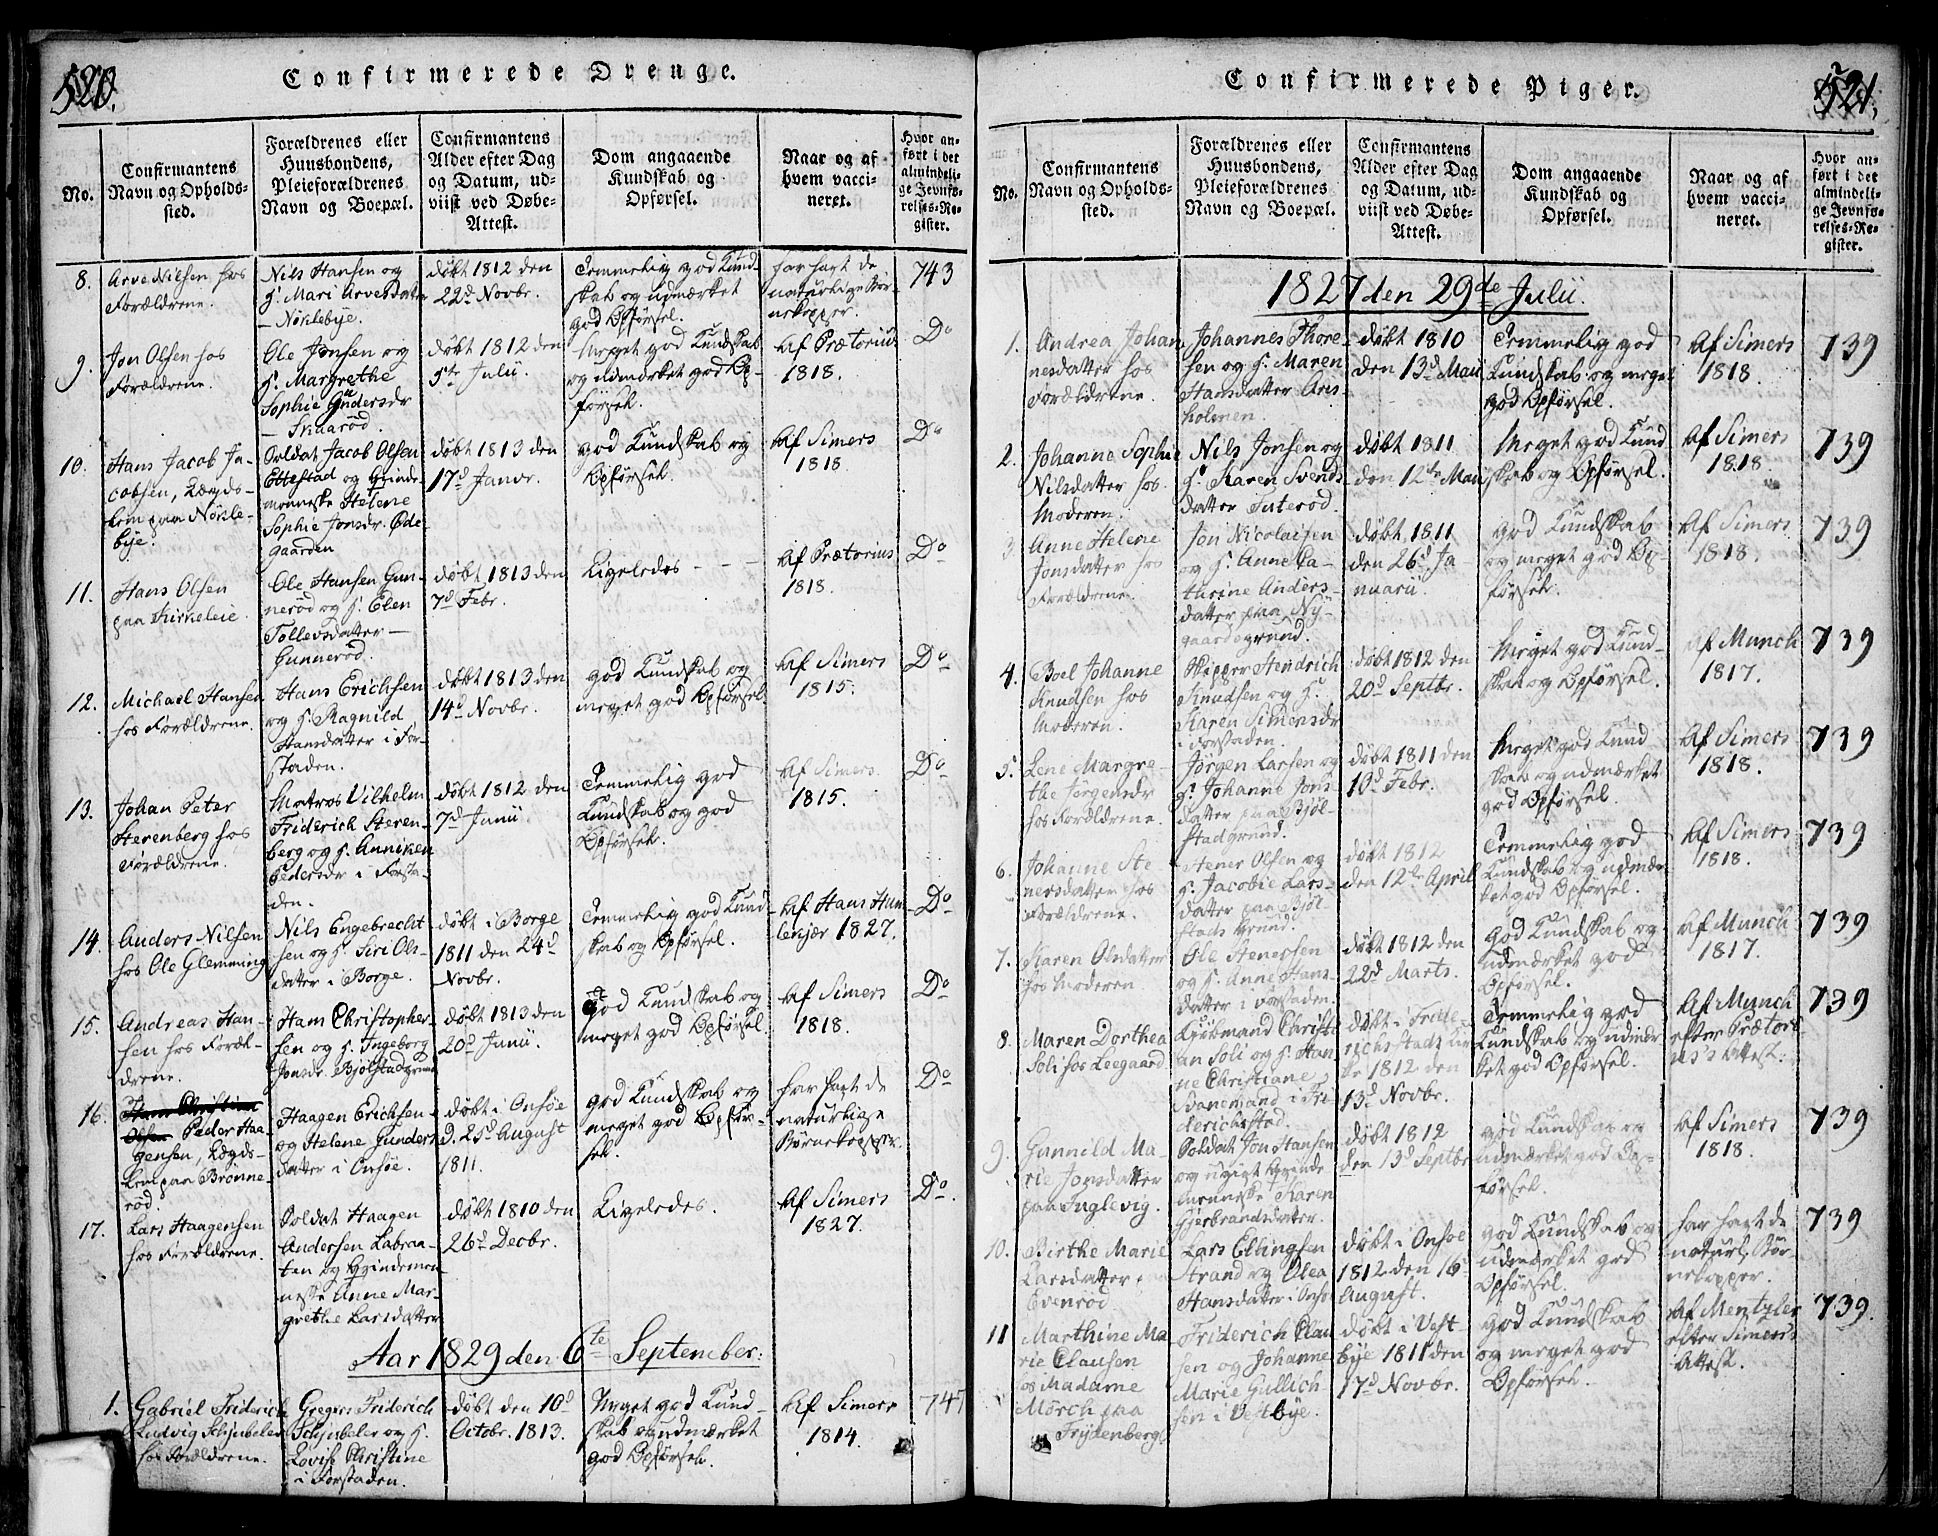 520.
Confirmerede Drenge.
No.
Confirmantens
Navn og Opholds-
sted.
Forældrenes eller
Huusbondens,
Pleieforældrenes
Navn og Boepæl.
Confirmantens
Alder efter Dag
og Datum, ud-
viist ved Døbe-
Attest.
Dom angaaende
Kundskab og
Opførsel.
Naar og af
hvem vacci-
neret.
Hvor an-
ført i det
almindeli-
ge Jevnfø-
relses-Re-
gister.
8.
Arve Nilsen hos
Forældrene.
Nils Hansen og
H. Mari Arvesdatter
— Nöklebye.
döbt 1812 den
22d Novbr.
Temmelig god Kund-
skab og udmærket
god Opførsel.
har havt de
naturlige Bör-
nekopper.
743
9.
Jon Olsen hos
Forældrene.
Ole Jonsen og
H. Margrethe
Sophie Gundersdr
— Skaaröd.
döbt 1812 den
5te Julii.
Meget god Kundskab
og udmærket god Op-
førsel.
af Prætorius
1818.
Do
10.
Hans Jacob Ja-
cobsen, Lægds-
lem paa Nökle-
bye.
Soldat Jacob Olsen
Ettestad og Qvinde-
menneske Helene
Sophie Jonsdr. Øde-
gaarden
döbt 1813 den
17d Janvr.
god Kundskab og
Opførsel.
Af Simers
1818.
Do
11.
Hans Olsen
paa Kirkeleie.
Ole Hansen Gun-
neröd og H. Elen
Tollevsdatter —
Gunneröd.
döbt 1813 den
7d Febr.
Ligeledes - - -
af Prætorius
1818.
Do
12.
Michael Hansen
hos Forældrene.
Hans Erichsen
og H. Ragnild
Hansdatter i For-
staden.
döbt 1813 den
14d Novbr.
god Kundskab og
meget god Opførsel
Af Simers
1815.
Do
13.
Johan Peter
Sterenberg hos
Forældrene.
Matros Vilhelm
Friderich Steren-
berg og H. Anniken
Pedersdr i Forsta-
den.
döbt 1812 den
7d Junii.
Temmelig god
Kundskab og god
Opførsel.
Af Simers.
1815.
Do
14.
Anders Nilsen
hos Ole Glemming
Nils Engebrecht
sen og H. Siri Ols-
datter i Borge.
döbt i Borge
1811 den 24d
Novbr.
Temmelig god Kund-
skab og Opførsel.
Af Hans Hum-
lekjær 1827.
Do
15.
Andreas Han-
sen hos Foræl-
drene.
Hans Christopher-
sen og H. Ingeborg
Jonsdr. Bjölstadgrund
döbt 1813 den
20d Junii.
God Kundskab og
meget god Opførsel.
Af Simers
1818.
Do
16.
Hans Christian
Olsen Peder Haa-
gensen, Lægds-
lem paa Brönne-
röd.
Haagen Erichsen
og Helene Gunders
datter i Onsöe.
döbt i Onsöe
d. 25d August
1811.
god Kundskab og
meget god Opför-
sel.
har havt de
naturlige
Börnekopper.
Do
17.
Lars Haagensen
hos Forældrene.
Soldat Haagen
Andersen Labraa-
ten og Qvindemen-
neske Anne Mar-
grethe Larsdatter
döbt 1810 den
26d Decbr.
Ligeledes.
Af Simers
1827.
Do.
Aar 1829 den 6te September:
1.
Gabriel Friderich
Ludvig Schjubeler
hos Forældrene.
Gregers Friderich
Schjubeler og H.
Lovise Christine
i Forstaden.
döbt den 10d
Octobr. 1813.
Meget god Kund-
skab og udmærket
god Opførsel.
Af Simers
1814.
747
521.
Confirmerede Piger.
No.
Confirmantens
Navn og Opholds-
sted.
Forældrenes eller
Huusbondens,
Pleieforældrenes
Navn og Boepæl.
Confirmantens
Alder efter Dag
og Datum, ud-
viist ved Døbe-
Attest.
Dom angaaende
Kundskab og
Opførsel.
Naar og af
hvem vacci-
neret.
Hvor an-
ført i det
almindeli-
ge Jevnfø-
relses-Re-
gister.
1827 den 29de Julii.
1.
Andrea Johan
nesdatter hos
Forældrene.
Johannes Thore-
sen og H. Maren
Hansdatter Aris-
holmen.
döbt 1810
den 13d Maii
Temmelig god
Kundskab og meget
god Opførsel.
af Simers
1818.
739
2.
Johanne Sophie
Nilsdatter hos
Moderen.
Nils Jonsen og
H. Karen Svends-
datter Tuteröd.
döbt 1811
den 12te Maii
Meget god Kund
skab og Opførsel.
af Simers
1818
739
3.
Anne Helene
Jonsdatter hos
Forældrene.
Jon Nicolaisen
og H. Anne Ca-
thrine Anders-
datter paa Ny-
gaardsgrund.
döbt 1811
den 26d Ja-
nuarii.
god Kundskab
og meget god Op
førsel.
af Simers
1818.
739
4.
Boel Johanne
Knudsen hos
Moderen.
Skipper Hendrich
Knudsen og H.
Karen Simensdr
i Forstaden.
döbt 1812 den
20d Septbr.
Meget god Kund-
skab og Opførsel.
af Munch
1817.
739
5.
Lene Margre-
the Jörgensdr
hos Forældrene.
Jörgen Larsen og
H. Johanne Jons
datter paa Bjöl-
stadgrund.
döbt 1811 den
10d Febr.
Meget god Kund
skab og udmærket
god Opførsel.
af Simers
1818.
739
6.
Johanne Ste
nersdatter hos
Forældrene.
Stener Olsen og
H. Jacobie Lars-
datter paa Bjöl-
stads Grund.
döbt 1812
den 12te April
Temmelig god
Kundskab og udmær-
ket god Opførsel.
af Simers
1818.
739
7.
Karen Olsdatter
hos Moderen
Ole Stenersen
og H. Anne Hans-
datter i Forstaden.
döbt 1812 den
22d Marts.
god Kundskab og
udmærket god
Opførsel.
af Munch
1817.
739
8.
Maren Dorthea
Soli hos Leegaard
Kjöbmand Christi
an Soli og H. Han
ne Christiane
Svanemand i Fri
derichstad.
döbt i Fride-
richstads Kir
ke 1812 den
13d Novbr.
Temmelig god
Kundskab og udmær
ket god Opførsel.
Af Munch
efter Prætori
us's Attest.
739
9.
Gunneld Ma-
rie Jonsdatter
paa Fuglevig.
Soldat Jon Hansen
og ugivt Qvinde
menneske Karen
Gjerbrandsdatter.
döbt 1812
den 13d Septbr
god Kundskab og
udmærket god Op-
førsel.
af Simers
1818.
739
10.
Birthe Marie
Larsdatter
Evenröd
Lars Ellingsen
Strand og Olea
Hansdatter i Onsö
döbt i Onsöe
1812 den 16d
August.
god Kundskab og
udmærket god
Opførsel.
har havt de
naturl. Bör-
nekopper.
739
11
Marthine Ma
rie Clausen
hos Madame
Mörch paa
Frydenberg
Friderich Clau
sen og Johanne
Marie Gullich
sen i Vestbye.
döbt i Vest-
bye 1811 den
17d Novbr.
god Kundskab
og meget god
Opførsel.
Af Mentzler
efter Simers's
Attest.
739.